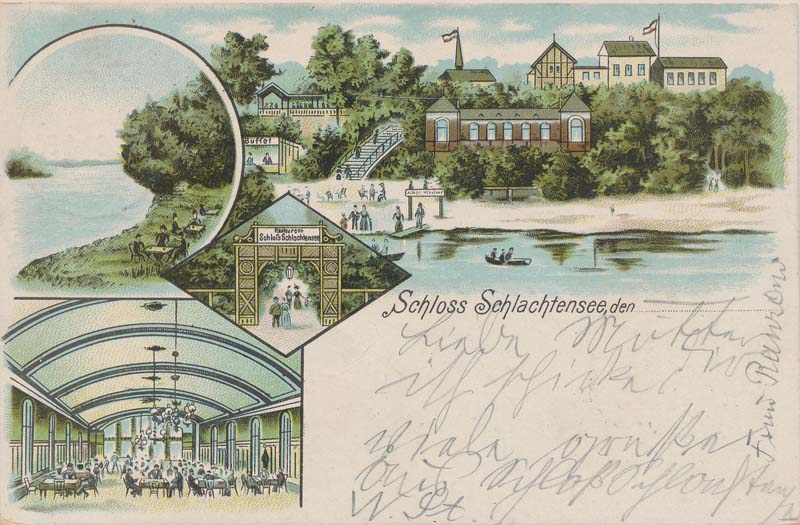 Buffet
Restaurant
Schloß Schlachtensee
Schloss Schlachtensee, den
Liebe Mutter
ich schicke Dir
viele grüße
aus Schloß